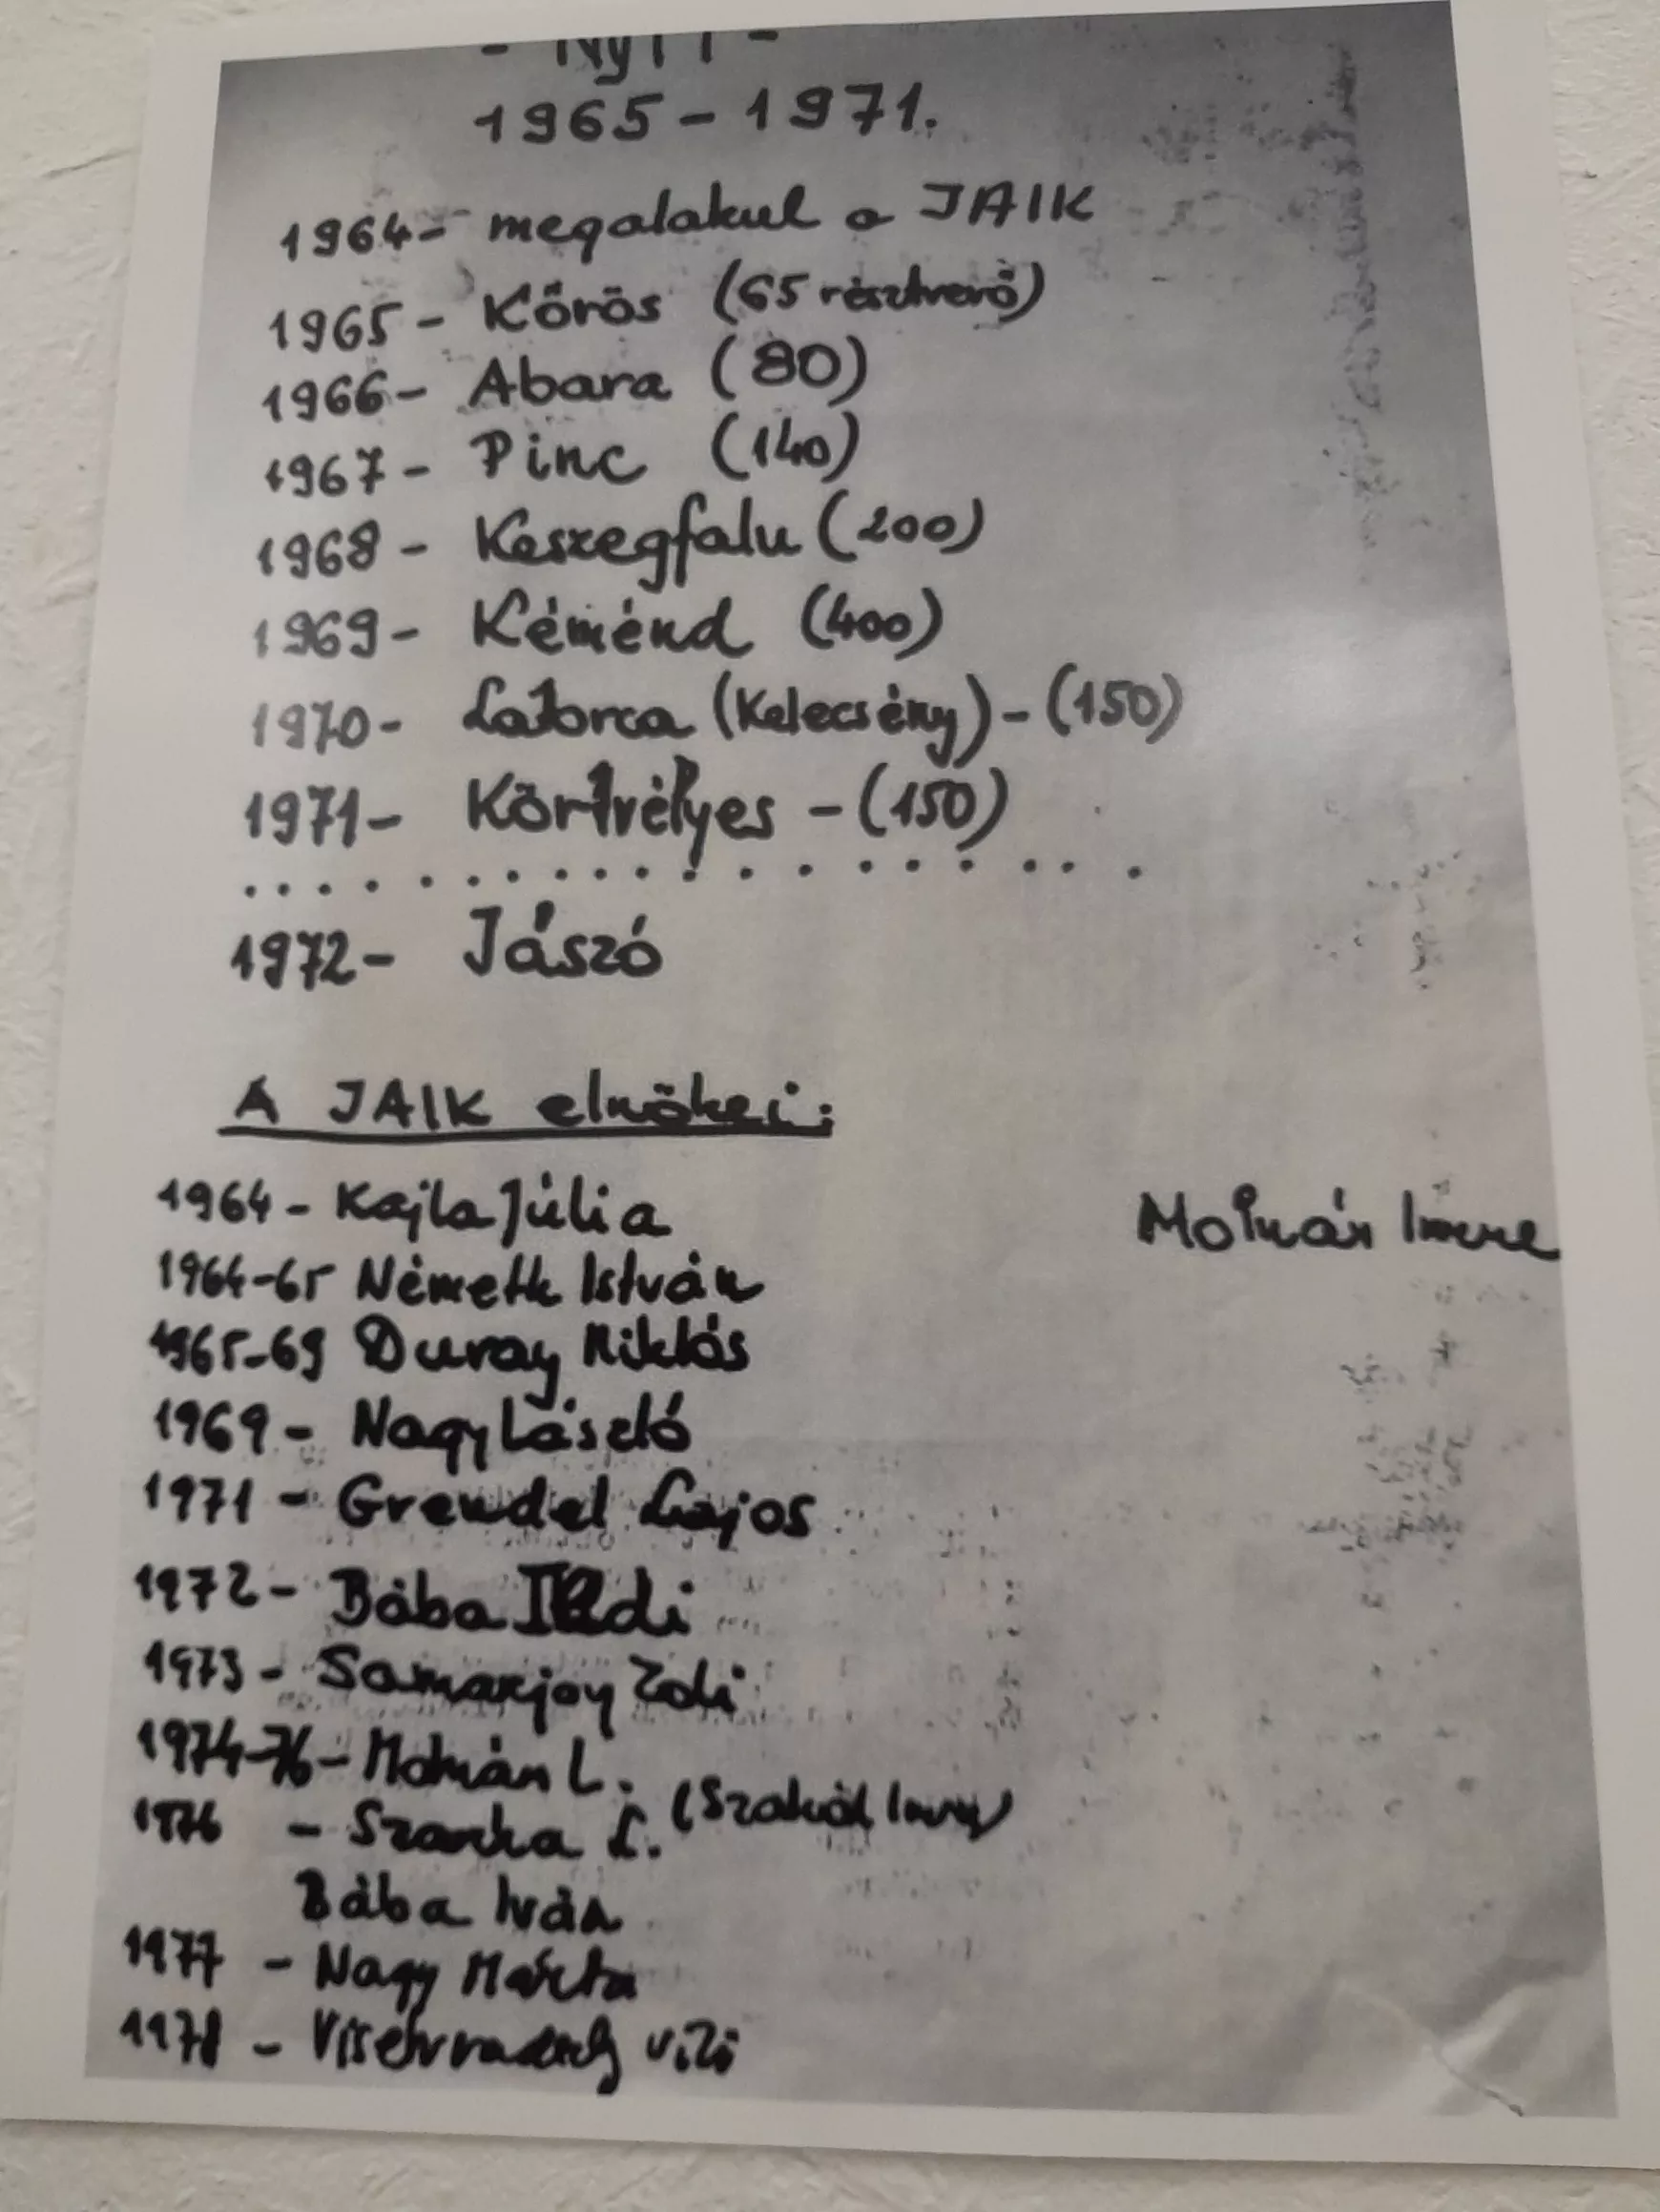 - NyIT -
1965 - 1971.
1964 - megalakul a JAIK
1965 - Kőrös (65 résztvevő)
1966 - Abara (80)
1967 - Pinc (140)
1968 - Keszegfalu (200)
1969 - Kéménd (400)
1970 - Latorca (Kelecsény) - (150)
1971 - Körtvélyes - (150)
..................
1972 - Jászó
A JAIK elnökei:
1964 - Kajla Júlia
Molnár Imre
1964-65 Németh István
1965-69 Duray Miklós
1969 - Nagy László
1971 - Grendel Lajos
1972 - Bába Ildi
1973 - Samarjay Zoli
1974-76 - Molnán L.
1976 - Szarka L. (Szakál Imre)
Bába Iván
1977 - Nagy Márta
1978 -